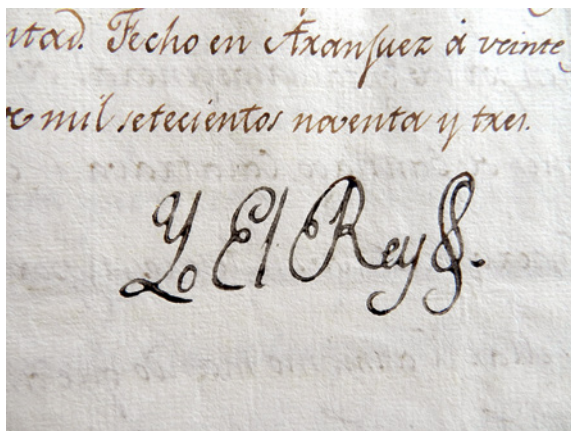 ntad. Fecho en Aranjuez á veinte
mil setecientos noventa y tres.
Yo El Rey